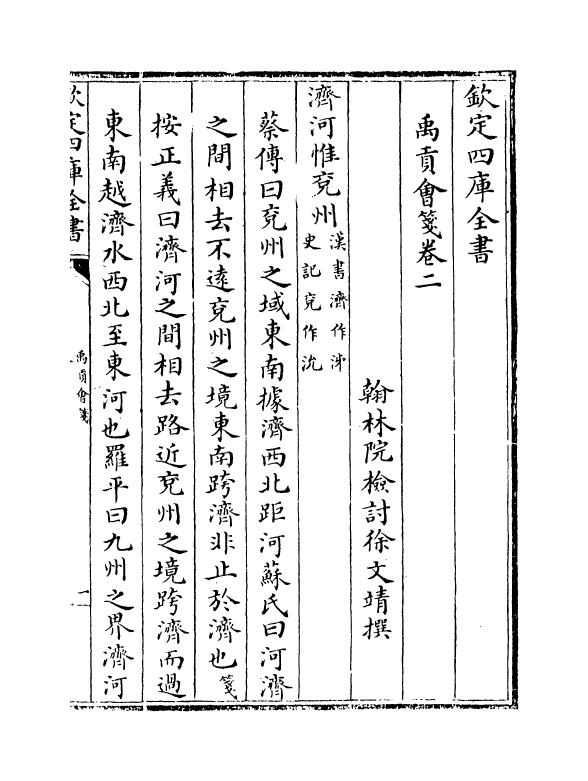 欽定四庫全書
禹貢會箋卷二
翰林院檢討徐文靖撰
濟河惟兗州漢書濟作泲
史記兗作沇
蔡傳曰兗州之域東南據濟西北距河蘇氏曰河濟
之間相去不遠兗州之境東南跨濟非止於濟也箋
按正義曰濟河之間相去路近兗州之境跨濟而過
東南越濟水西北至東河也羅平曰九州之界濟河
欽定四庫全書
禹貢會箋
一